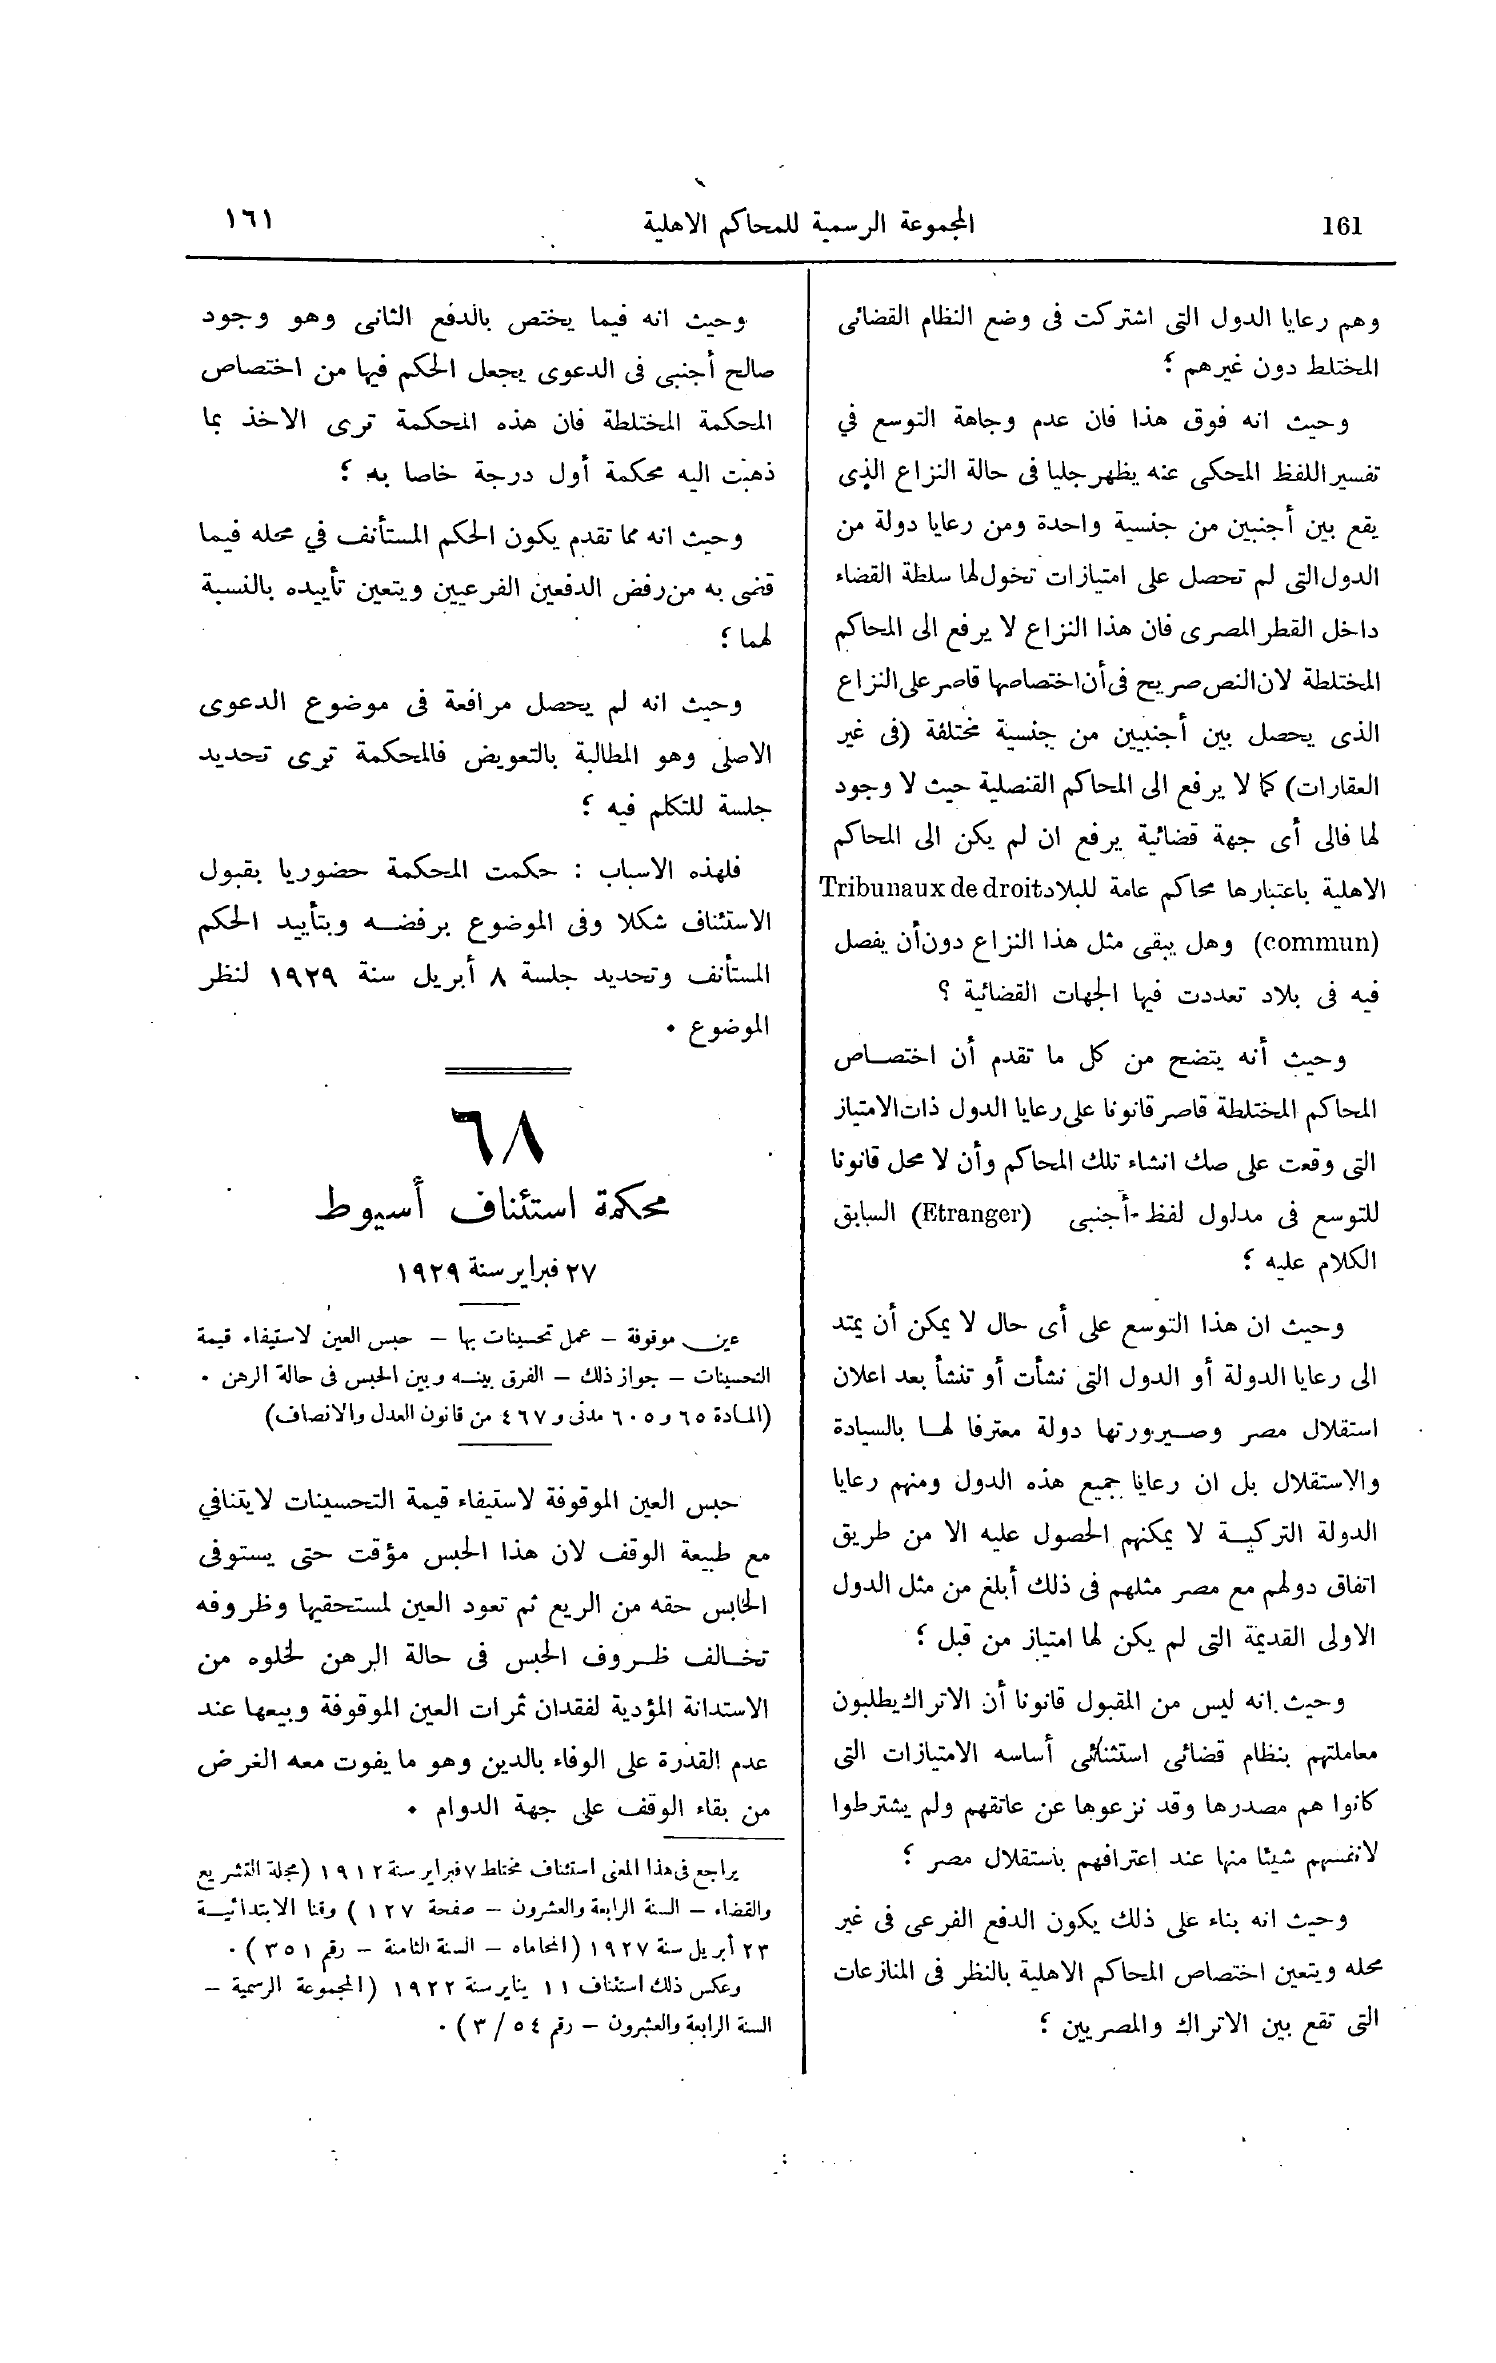 161
المجموعة الرسمية للمحاكم الاهلية
١٦١
وهم رعايا الدول التى اشتركت فى وضع النظام القضائى
المختلط دون غيرهم ؛
وحيث انه فوق هذا فان عدم وجاهة التوسع في
تفسير اللفظ المحكى عنه يظهر جليا فى حالة النزاع الذى
يقع بين أجنبين من جنسية واحدة ومن رعايا دولة من
الدول التى لم تحصل على امتيازات تخول لها سلطة القضاء
داخل القطر المصرى فان هذا النزاع لا يرفع الى المحاكم
المختلطة لان النص صريح فى أن اختصاصها قاصر على النزاع
الذى يحصل بين أجنبيين من جنسية مختلفة (فى غير
العقارات) كما لا يرفع الى المحاكم القنصلية حيث لا وجود
لها فالى أى جهة قضائية يرفع ان لم يكن الى المحاكم
الاهلية باعتبارها محاكم عامة للبلاد Tribunaux de droit
(commun) وهل يبقى مثل هذا النزاع دون أن يفصل
فيه فى بلاد تعددت فيها الجهات القضائية ؟
وحيث أنه يتضح من كل ما تقدم أن اختصاص
المحاكم المختلطة قاصر قانونا على رعايا الدول ذات الامتياز
التى وقعت على صك انشاء تلك المحاكم وأن لا محل قانونا
للتوسع فى مدلول لفظ أجنبى (Etranger) السابق
الكلام عليه ؛
وحيث ان هذا التوسع على أى حال لا يمكن أن يمتد
الى رعايا الدولة أو الدول التى نشأت أو تنشأ بعد اعلان
استقلال مصر وصيرورتها دولة معترفا لها بالسيادة
والاستقلال بل ان رعايا جميع هذه الدول ومنهم رعايا
الدولة التركية لا يمكنهم الحصول عليه الا من طريق
اتفاق دولهم مع مصر مثلهم فى ذلك أبلغ من مثل الدول
الاولى القديمة التى لم يكن لها امتياز من قبل ؛
وحيث انه ليس من المقبول قانونا أن الاتراك يطلبون
معاملتهم بنظام قضائى استثنائى أساسه الامتيازات التى
كانوا هم مصدرها وقد نزعوها عن عاتقهم ولم يشترطوا
لانفسهم شيئا منها عند اعترافهم باستقلال مصر ؛
وحيث انه بناء على ذلك يكون الدفع الفرعى فى غير
محله ويتعين اختصاص المحاكم الاهلية بالنظر فى المنازعات
التى تقع بين الاتراك والمصريين ؛
وحيث انه فيما يختص بالدفع الثانى وهو وجود
صالح أجنبى فى الدعوى يجعل الحكم فيها من اختصاص
المحكمة المختلطة فان هذه المحكمة ترى الاخذ بما
ذهبت اليه محكمة أول درجة خاصا به ؛
وحيث انه مما تقدم يكون الحكم المستأنف في محله فيما
قضى به من رفض الدفعين الفرعيين ويتعين تأييده بالنسبة
لهما ؛
وحيث انه لم يحصل مرافعة فى موضوع الدعوى
الاصلى وهو المطالبة بالتعويض فالمحكمة ترى تحديد
جلسة للتكلم فيه ؛
فلهذه الاسباب : حكمت المحكمة حضوريا بقبول
الاستئناف شكلا وفى الموضوع برفضه وبتأييد الحكم
المستأنف وتحديد جلسة ٨ أبريل سنة ١٩٢٩ لنظر
الموضوع .
٦٨
محكمة استئناف أسيوط
٢٧ فبراير سنة ١٩٢٩
عين موقوفة – عمل تحسينات بها – حبس العين لاستيفاء قيمة
التحسينات – جواز ذلك – الفرق بينه وبين الحبس فى حالة الرهن .
(المادة ٦٥ و ٦٠٥ مدنى و ٤٦٧ من قانون العدل والانصاف)
حبس العين الموقوفة لاستيفاء قيمة التحسينات لا يتنافي
مع طبيعة الوقف لان هذا الحبس مؤقت حتى يستوفى
الحابس حقه من الريع ثم تعود العين لمستحقيها وظروفه
تخالف ظروف الحبس فى حالة الرهن لخلوه من
الاستدانة المؤدية لفقدان ثمرات العين الموقوفة وبيعها عند
عدم القدرة على الوفاء بالدين وهو ما يفوت معه الغرض
من بقاء الوقف على جهة الدوام .
يراجع فى هذا المعنى استئناف مختلط ٧ فبراير سنة ١٩١٢ (مجلة التشريع
والقضاء – السنة الرابعة والعشرون – صفحة ١٢٧) وقنا الابتدائية
٢٣ أبريل سنة ١٩٢٧ (المحاماه – السنة الثامنة – رقم ٣٥١) .
وعكس ذلك استئناف ١١ يناير سنة ١٩٢٢ (المجموعة الرسمية –
السنة الرابعة والعشرون – رقم ٥٤ / ٣) .